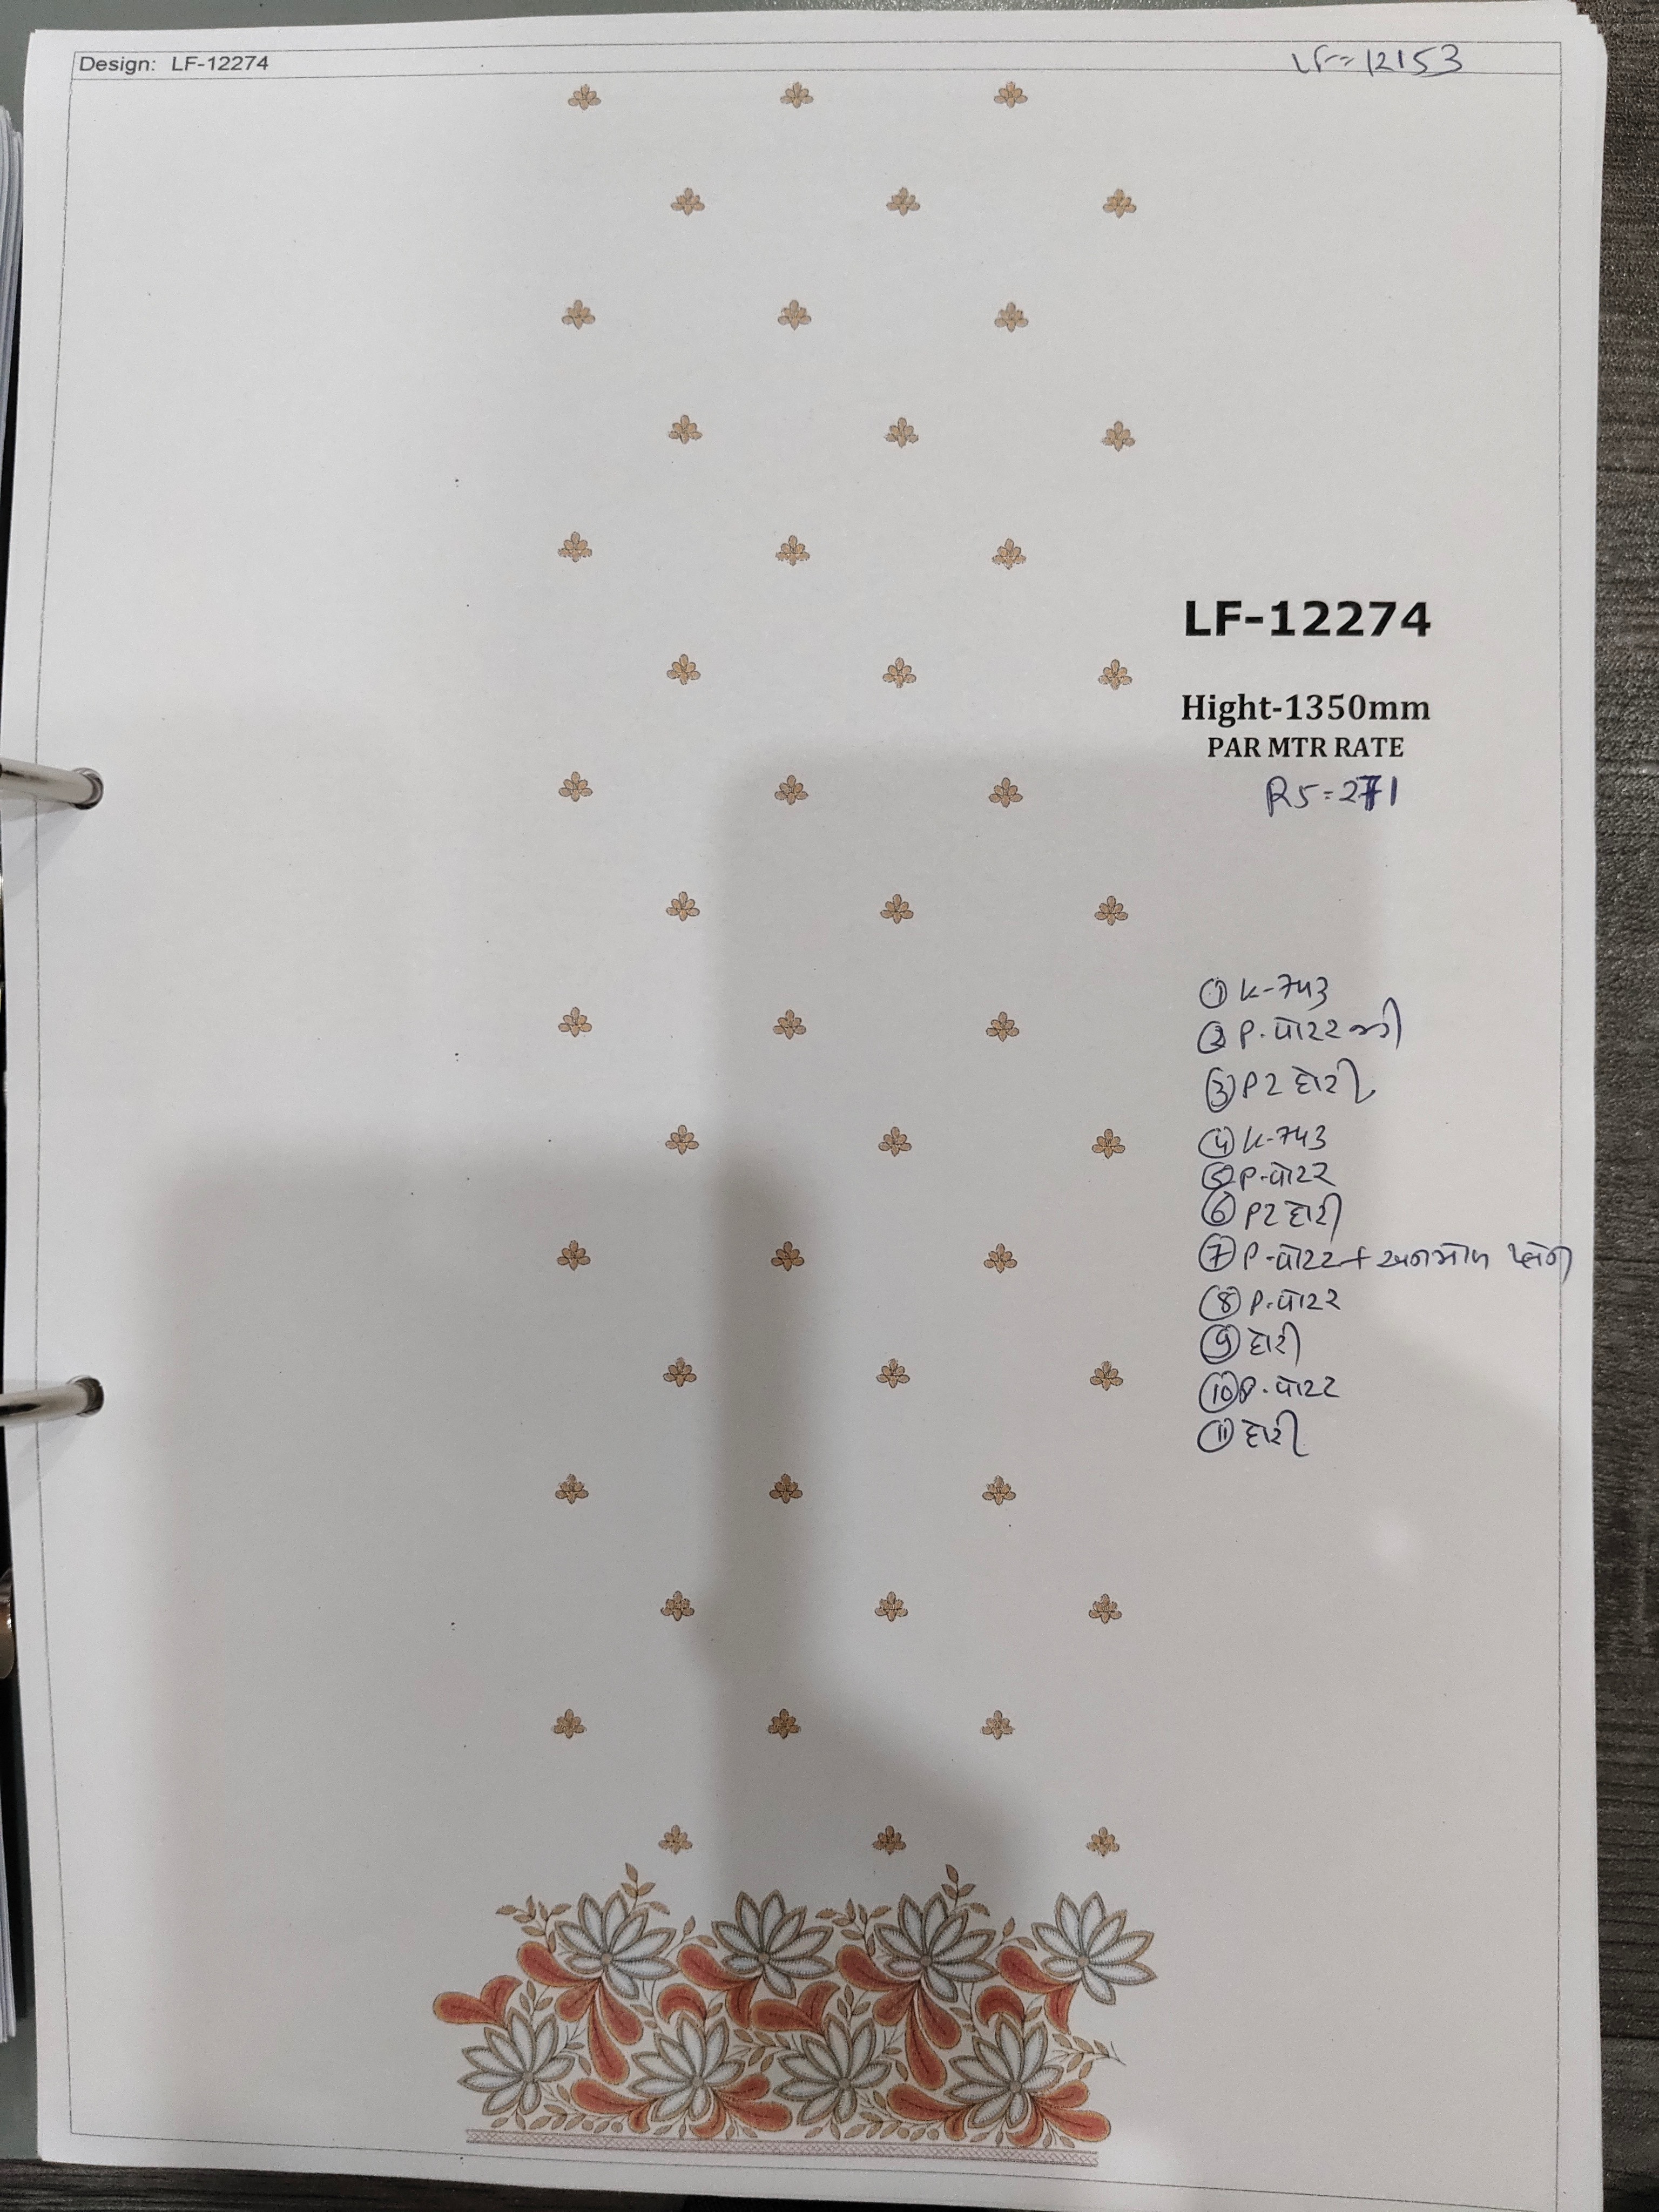 Design: LF-12274
LF=12153
LF-12274
Hight-1350mm
PAR MTR RATE
RS=271
① K-૭૫૩
② P.વોટર જરી
③ P2 દોરી
④ K-૭૫૩
⑤ P-વોટર
⑥ P2 દોરી
⑦ P-વોટર +
⑧ P.વોટર
⑨ દોરી
⑩ P.વોટર
⑪ દોરી